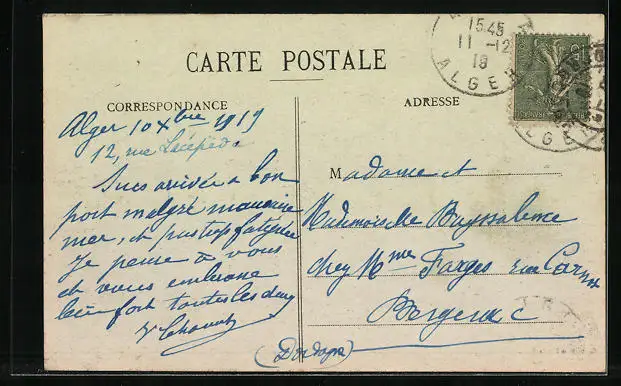 CARTE POSTALE
CORRESPONDANCE
ADRESSE
15 45
11 -12
19
ALGER
Alger 10 Xbre 1919
12, rue Lacépède
Suis arrivée à bon
port malgré mauvaise
mer, et pas trop fatiguée
Je pense à vous
et vous embrasse
bien fort toutes les deux
Madame et
Mademoiselle
chez Mme Farges rue
Bergerac
(Dordogne)